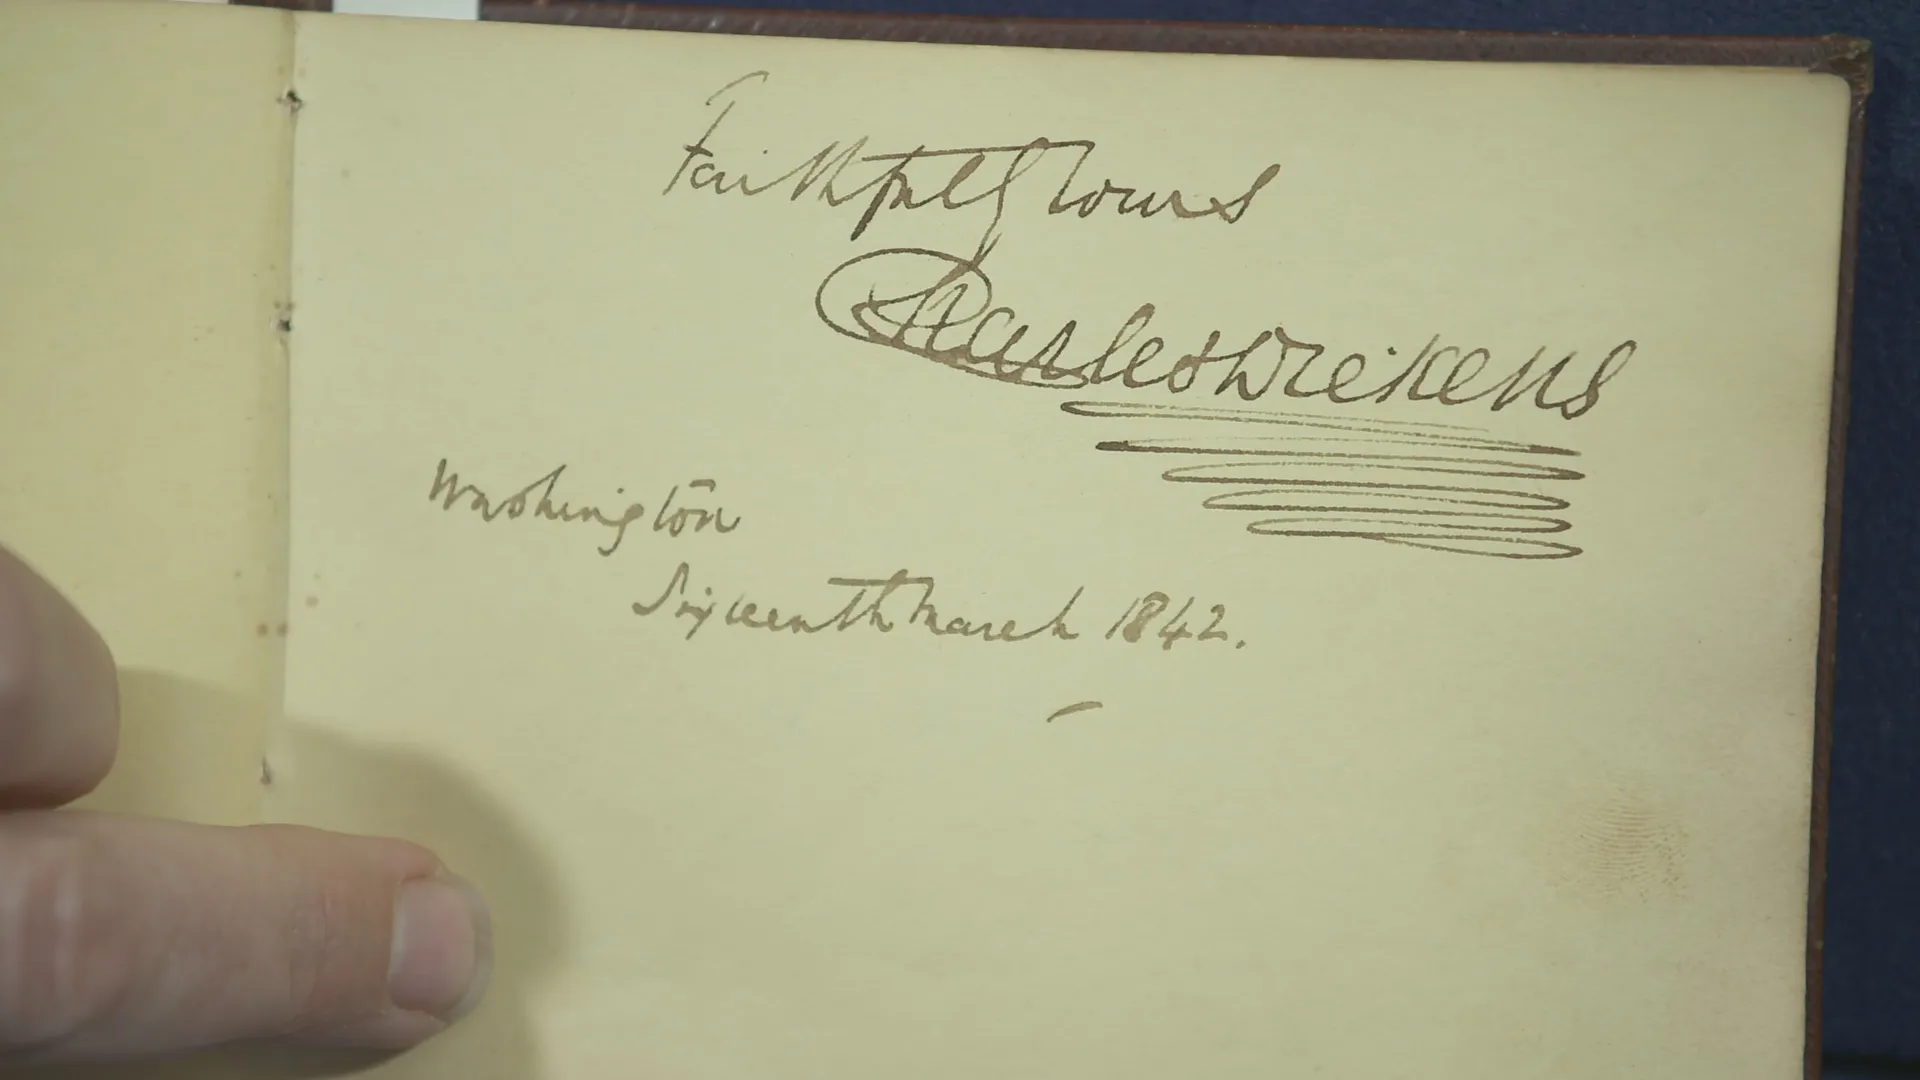 Faithfully Yours
Charles Dickens
Washington
Sixteenth March 1842.